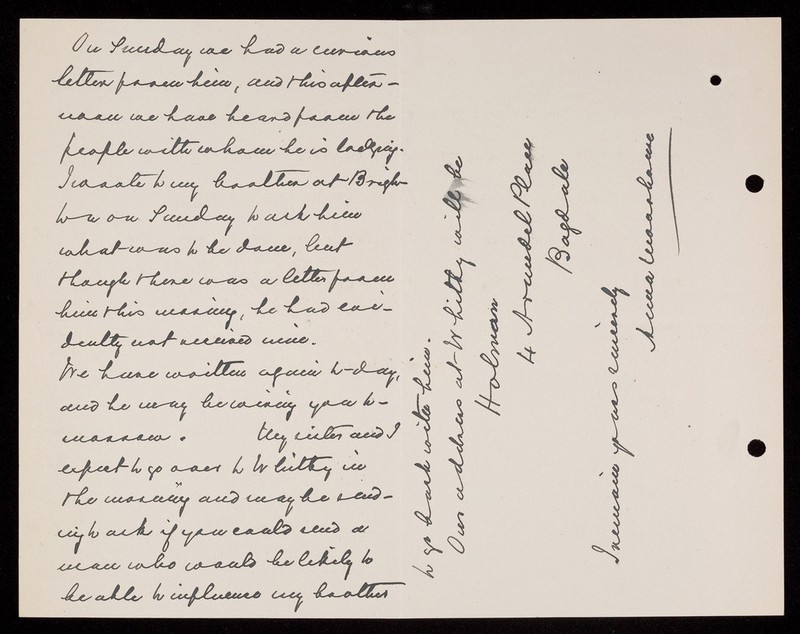 On Sunday we had a curious
letter from him, and this after-
noon we have heard from the
people with whom he is lodging.
I wrote to my brother at Brigh-
ton on Sunday to ask him
what was to be done, but
though there was a letter from
him this morning, he had evi-
dently not received mine.
We have written again to-day,
and he may be wiring you to-
morrow. My sister and I
expect to go over to Whitby in
the morning and may be send-
ing to ask if you could send a
man who would be likely to
be able to influence my brother
to go back with him.
Our address at Whitby will be
Holman
4 Arundel Place
Bagdale
I remain yours sincerely
Anna